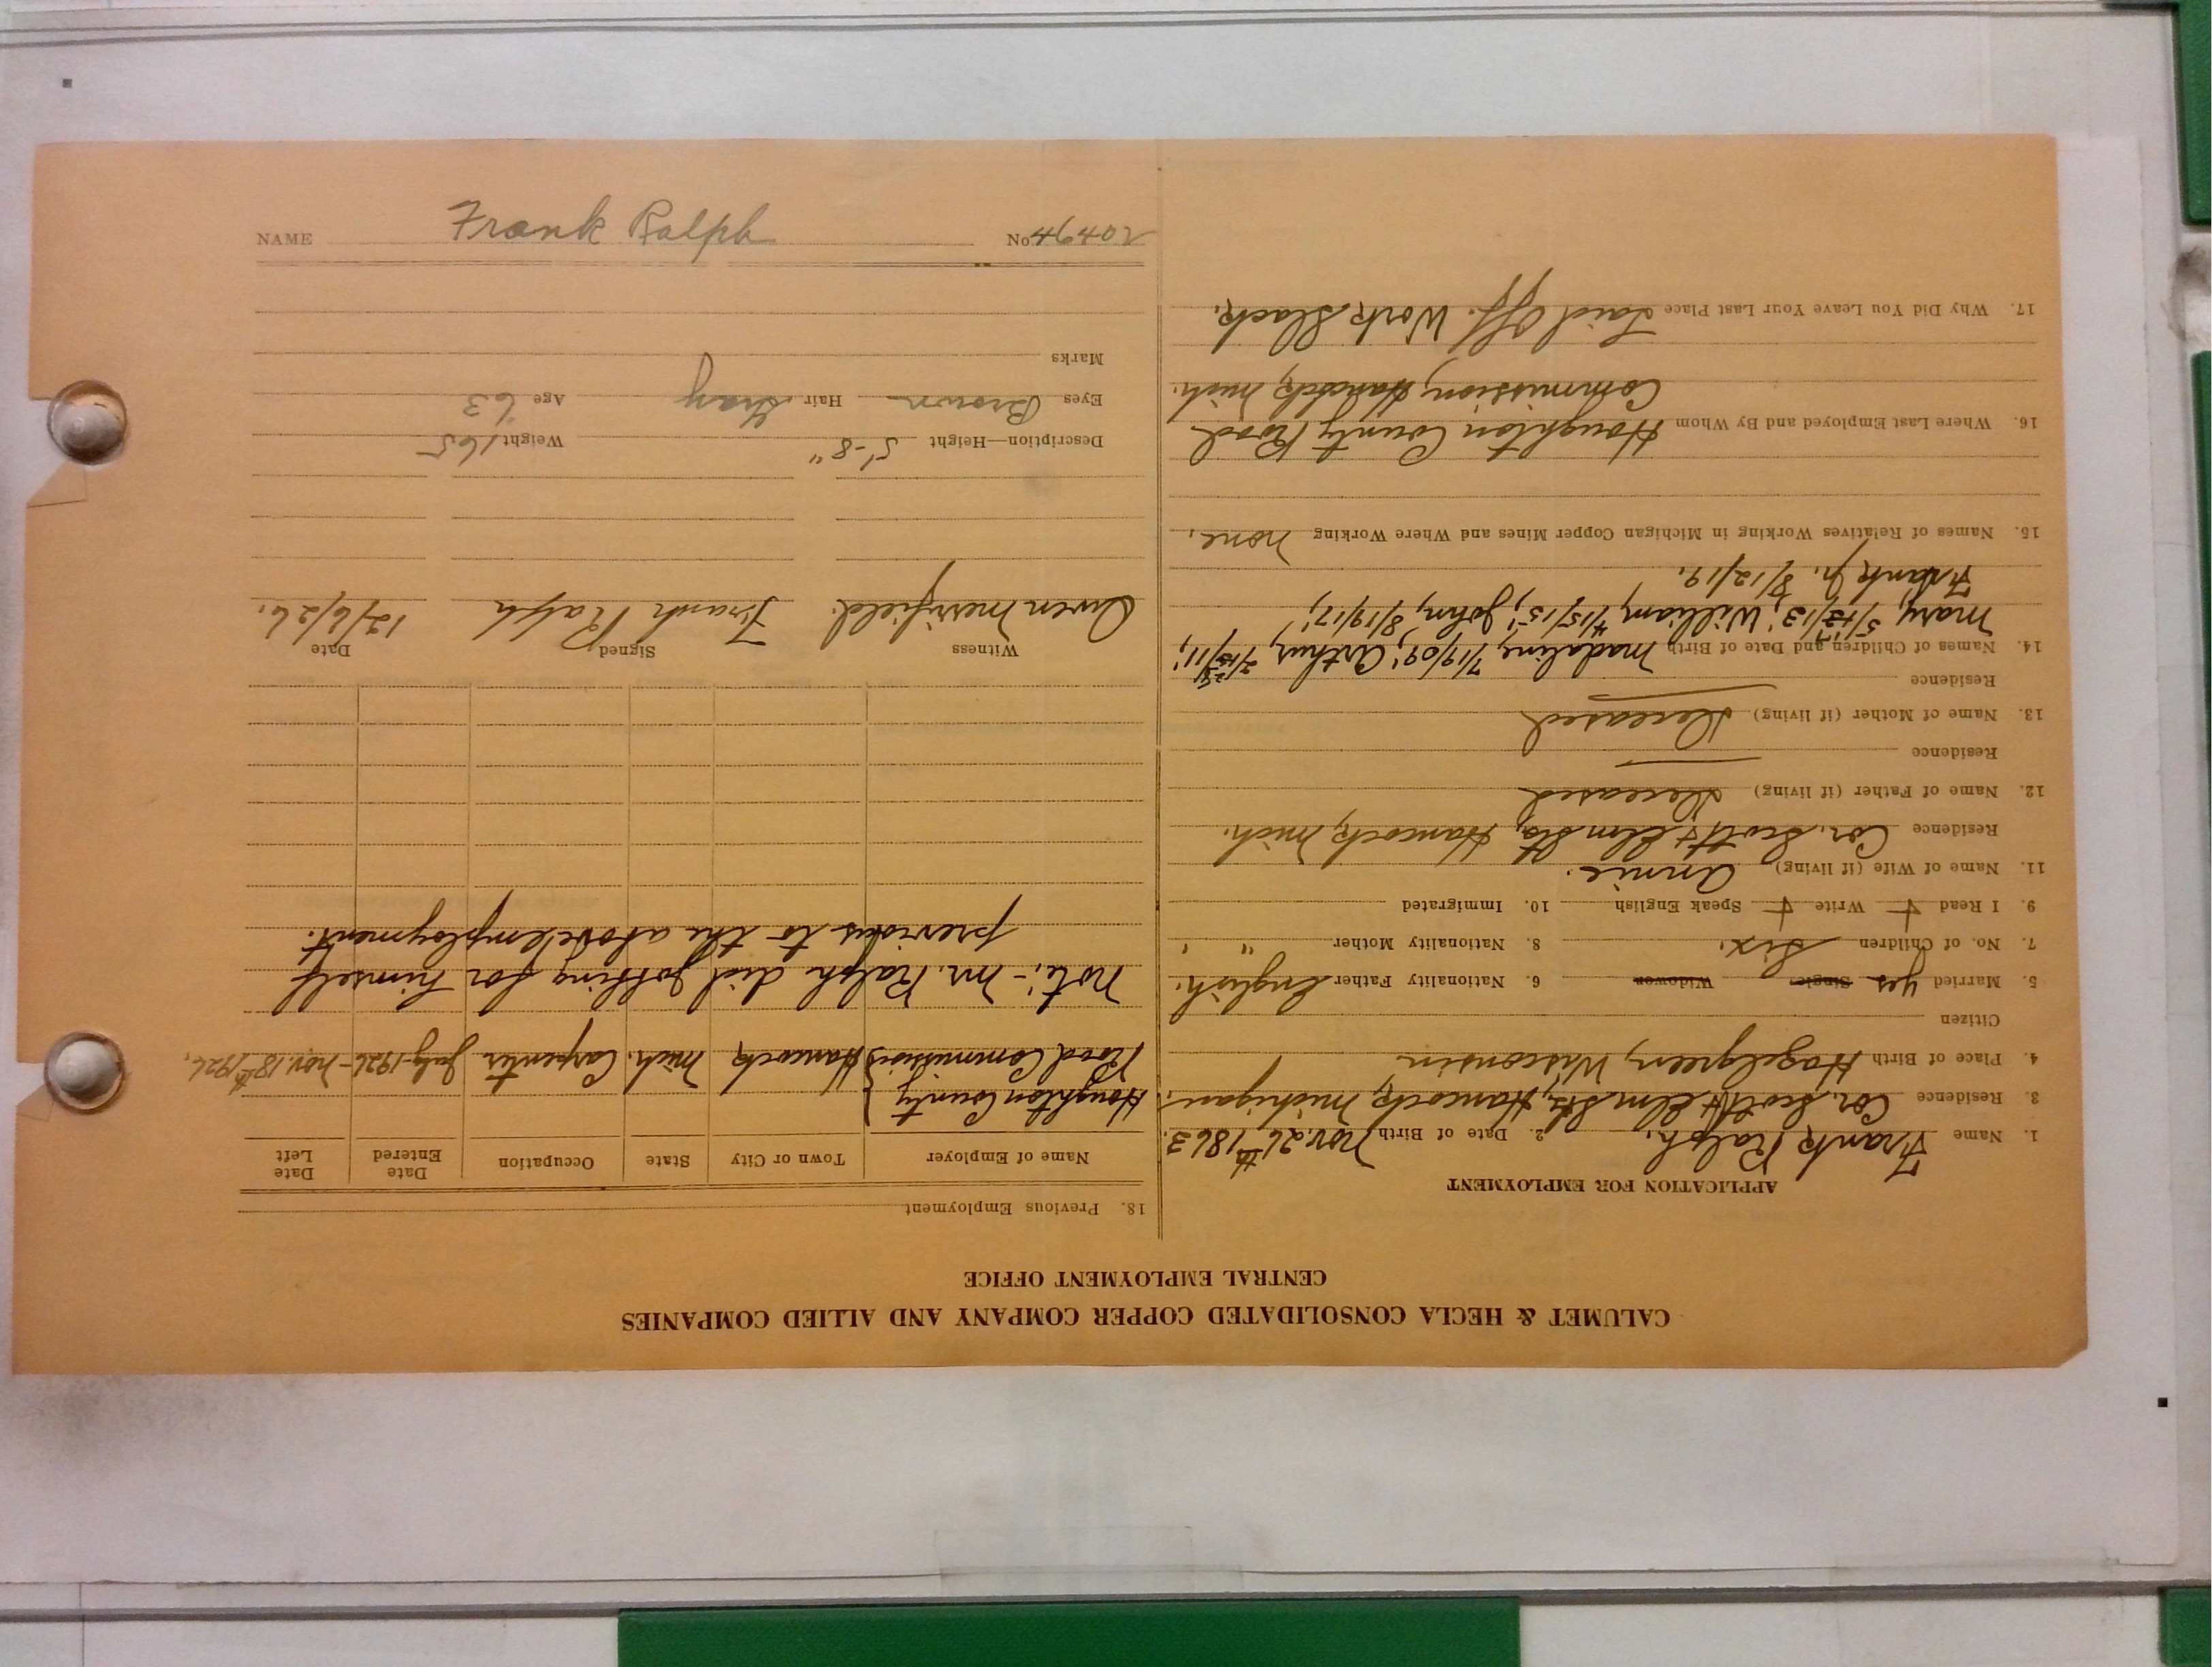 CALUMET & HECLA CONSOLIDATED COPPER COMPANY AND ALLIED COMPANIES
CENTRAL EMPLOYMENT OFFICE
APPLICATION FOR EMPLOYMENT
1. Name Frank Ralph. 2. Date of Birth Nov. 26th 1863.
3. Residence Cor. Scott & Elm Sts, Hancock, Michigan.
4. Place of Birth Hazelgreen, Wisconsin
Citizen
5. Married yes Single Widower 6. Nationality Father English.
7. No. of Children Six. 8. Nationality Mother " "
9. I Read + Write + Speak English 10. Immigrated
11. Name of Wife (if living) Annie.
Residence Cor. Scott & Elm Sts, Hancock, Mich.
12. Name of Father (if living) Deceased
Residence
13. Name of Mother (if living) Deceased
Residence
14. Names of Children and Date of Birth Madaline, 7/19/09; Arthur,
Mary, William, 4/15/15; John, 8/19/17;
Frank Jr. 8/12/19.
15. Names of Relatives Working in Michigan Copper Mines and Where Working None.
16. Where Last Employed and By Whom Houghton County Road
Commission, Hancock, Mich.
17. Why Did You Leave Your Last Place Laid Off. Work Slack.
18. Previous Employment
Name of Employer Town or City State Occupation Date Entered Date Left
Houghton County
Road Commission } Hancock, Mich. Carpenter July 1926 - Nov. 18th 1926.
Note:- Mr. Ralph did jobbing for himself
previous to the above employment.
Witness Signed Date
Owen Merrifield. Frank Ralph 12/6/26.
Description—Height 5'-8" Weight 165
Eyes Brown Hair Gray Age 63
Marks
NAME Frank Ralph No.